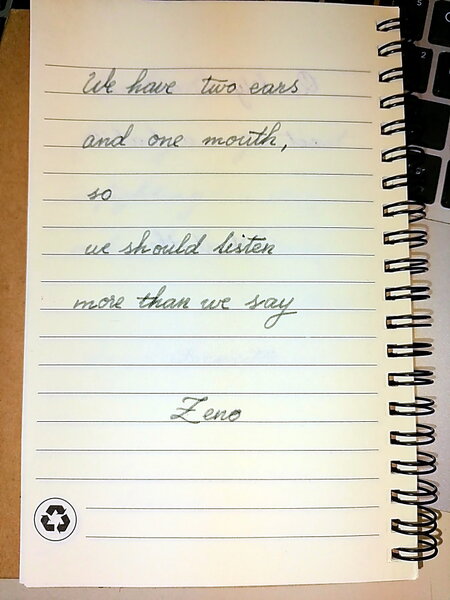 We have two ears
and one mouth,
so
we should listen
more than we say
Zeno